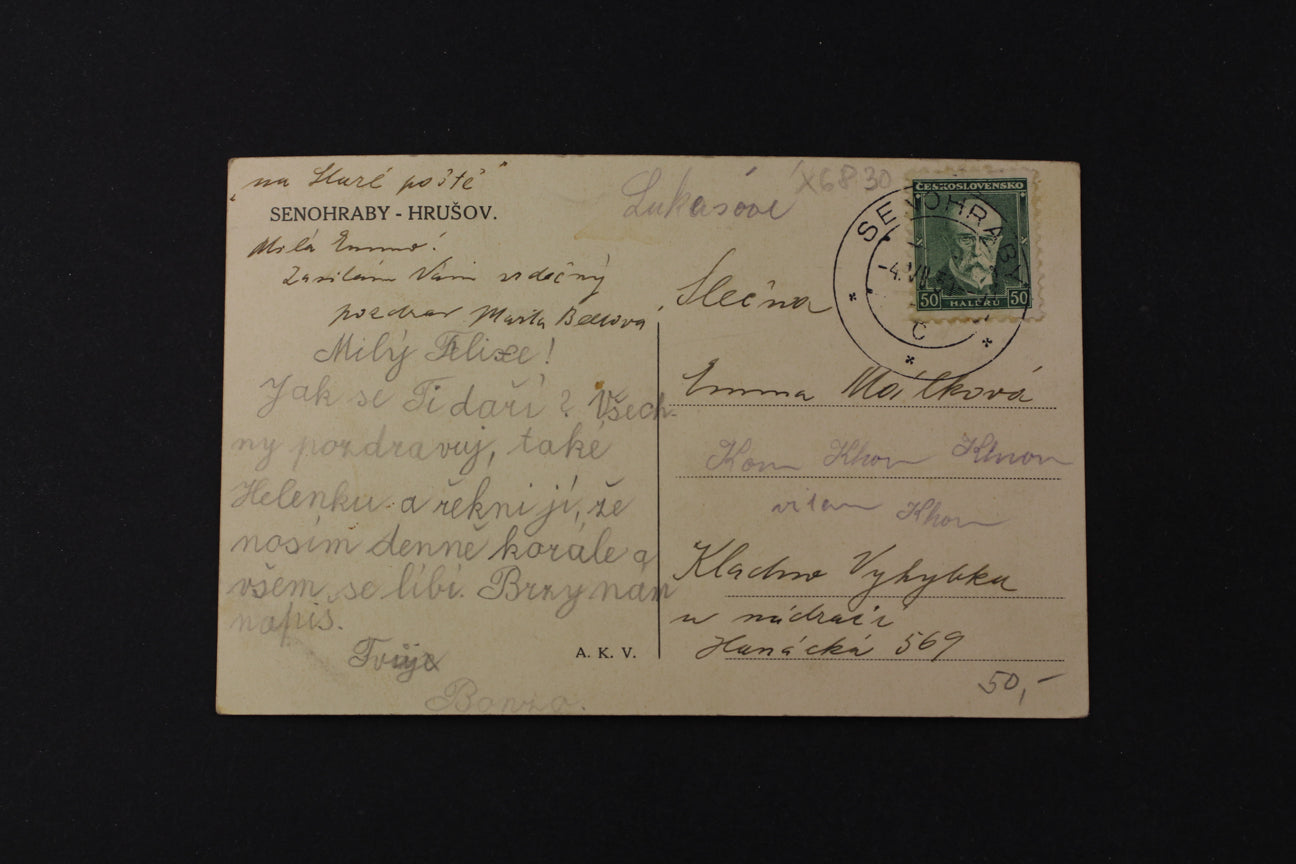 "na Staré poště"
SENOHRABY - HRUŠOV.
Milá Emmo!
Zasílám Vám srdečný
pozdrav Marta
Milý Felixe!
Jak se Ti daří? Všech-
ny pozdravuj, také
Helenku a řekni jí, že
nosím denně korále a
všem se líbí. Brzy nám
napiš.
A. K. V.
Lukasové
X6830
ČESKOSLOVENSKO
50 HALÉŘŮ 50
SENOHRABY
-4.VII.
C
Slečna
Emma Mátková
Kladno Vyhybka
u nádraží
Hanácká 569
50,-